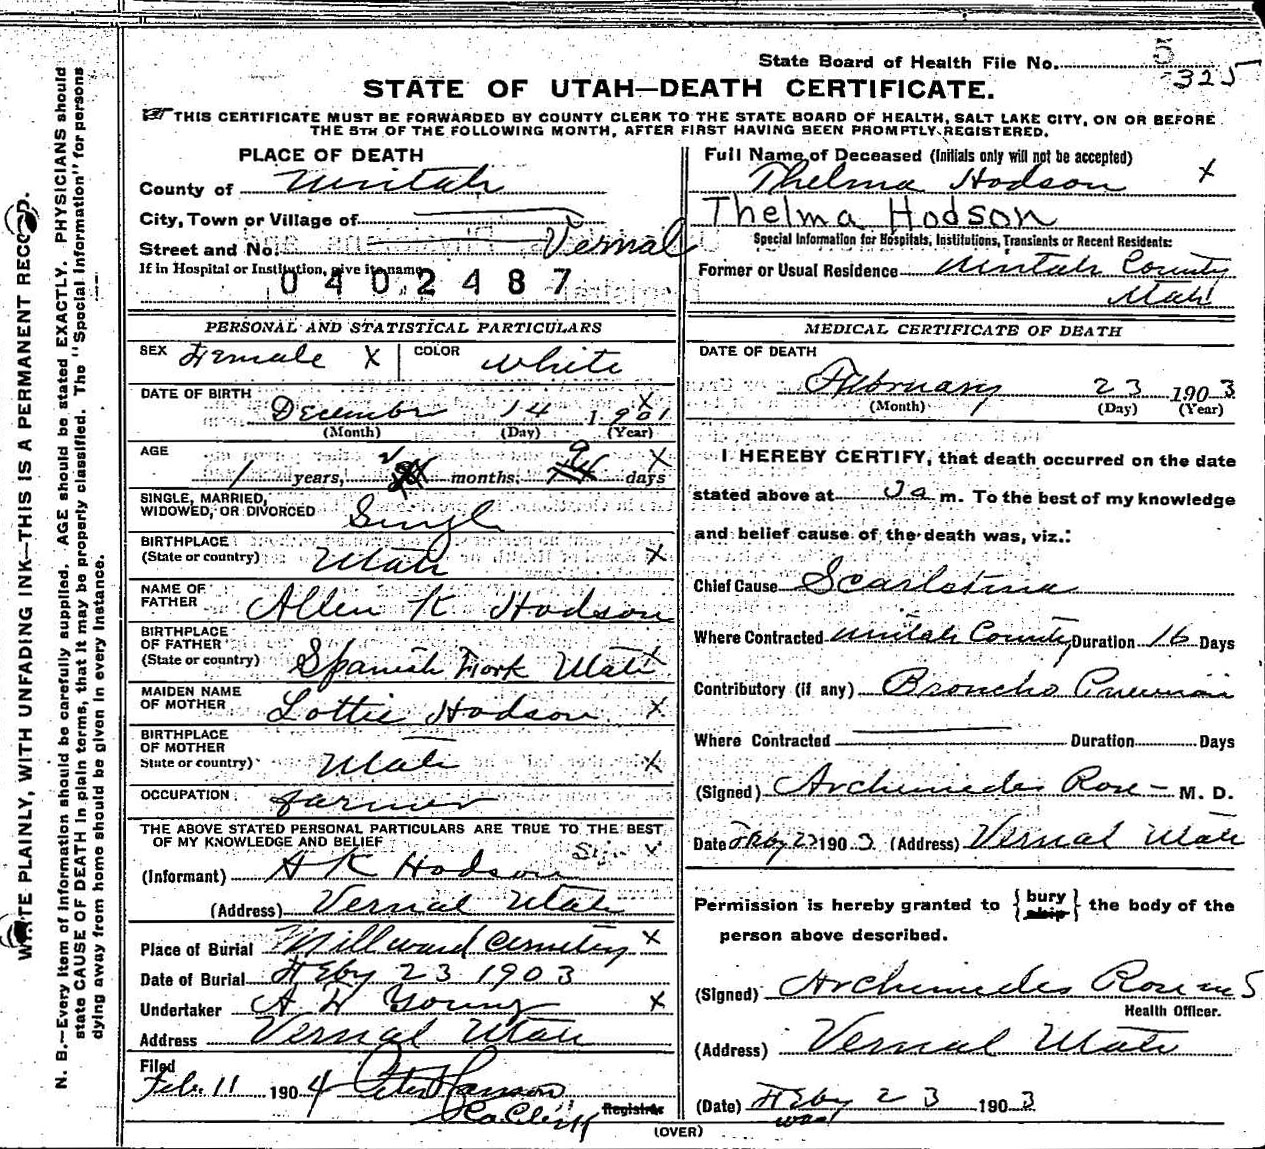 State Board of Health File No. 5
325
STATE OF UTAH—DEATH CERTIFICATE.
THIS CERTIFICATE MUST BE FORWARDED BY COUNTY CLERK TO THE STATE BOARD OF HEALTH, SALT LAKE CITY, ON OR BEFORE
THE 5TH OF THE FOLLOWING MONTH, AFTER FIRST HAVING BEEN PROMPTLY REGISTERED.
PLACE OF DEATH
County of Uintah
City, Town or Village of
Street and No. Vernal
If in Hospital or Institution, give its name
0402487
Full Name of Deceased (Initials only will not be accepted)
Thelma Hodson X
Thelma Hodson
Special Information for Hospitals, Institutions, Transients or Recent Residents:
Former or Usual Residence Uintah County
Utah
PERSONAL AND STATISTICAL PARTICULARS
SEX Female X COLOR White
DATE OF BIRTH X
December 14 1901
(Month) (Day) (Year)
AGE 1 years, 2 months, 9 days X
SINGLE, MARRIED,
WIDOWED, OR DIVORCED Single
BIRTHPLACE
(State or country) Utah X
NAME OF
FATHER Allen K Hodson
BIRTHPLACE
OF FATHER
(State or country) Spanish Fork Utah X
MAIDEN NAME
OF MOTHER Lottie Hodson X
BIRTHPLACE
OF MOTHER
State or country) Utah X
OCCUPATION farmer
THE ABOVE STATED PERSONAL PARTICULARS ARE TRUE TO THE BEST
OF MY KNOWLEDGE AND BELIEF Sign X
(Informant) A K Hodson
(Address) Vernal Utah
Place of Burial Millward Cemetery X
Date of Burial Feby 23 1903
Undertaker A W Young X
Address Vernal Utah
Filed
Feb. 11 1904 Peter Hanson
Co Clerk Registrar
MEDICAL CERTIFICATE OF DEATH
DATE OF DEATH
February 23 1903
(Month) (Day) (Year)
I HEREBY CERTIFY, that death occurred on the date
stated above at 3 a m. To the best of my knowledge
and belief cause of the death was, viz.:
Chief Cause Scarletina
Where Contracted Uintah County Duration 16 Days
Contributory (if any) Broncho Pneumoni
Where Contracted Duration Days
(Signed) Archimedes Rose M. D.
Date Feby 23 1903 (Address) Vernal Utah
Permission is hereby granted to { bury ship } the body of the
person above described.
(Signed) Archimedes Rose
Health Officer.
(Address) Vernal Utah
(Date) Feby 23 1903
West
(OVER)
WRITE PLAINLY, WITH UNFADING INK—THIS IS A PERMANENT RECORD.
N. B.—Every item of information should be carefully supplied. AGE should be stated EXACTLY. PHYSICIANS should
state CAUSE OF DEATH in plain terms, that it may be properly classified. The "Special Information" for persons
dying away from home should be given in every instance.